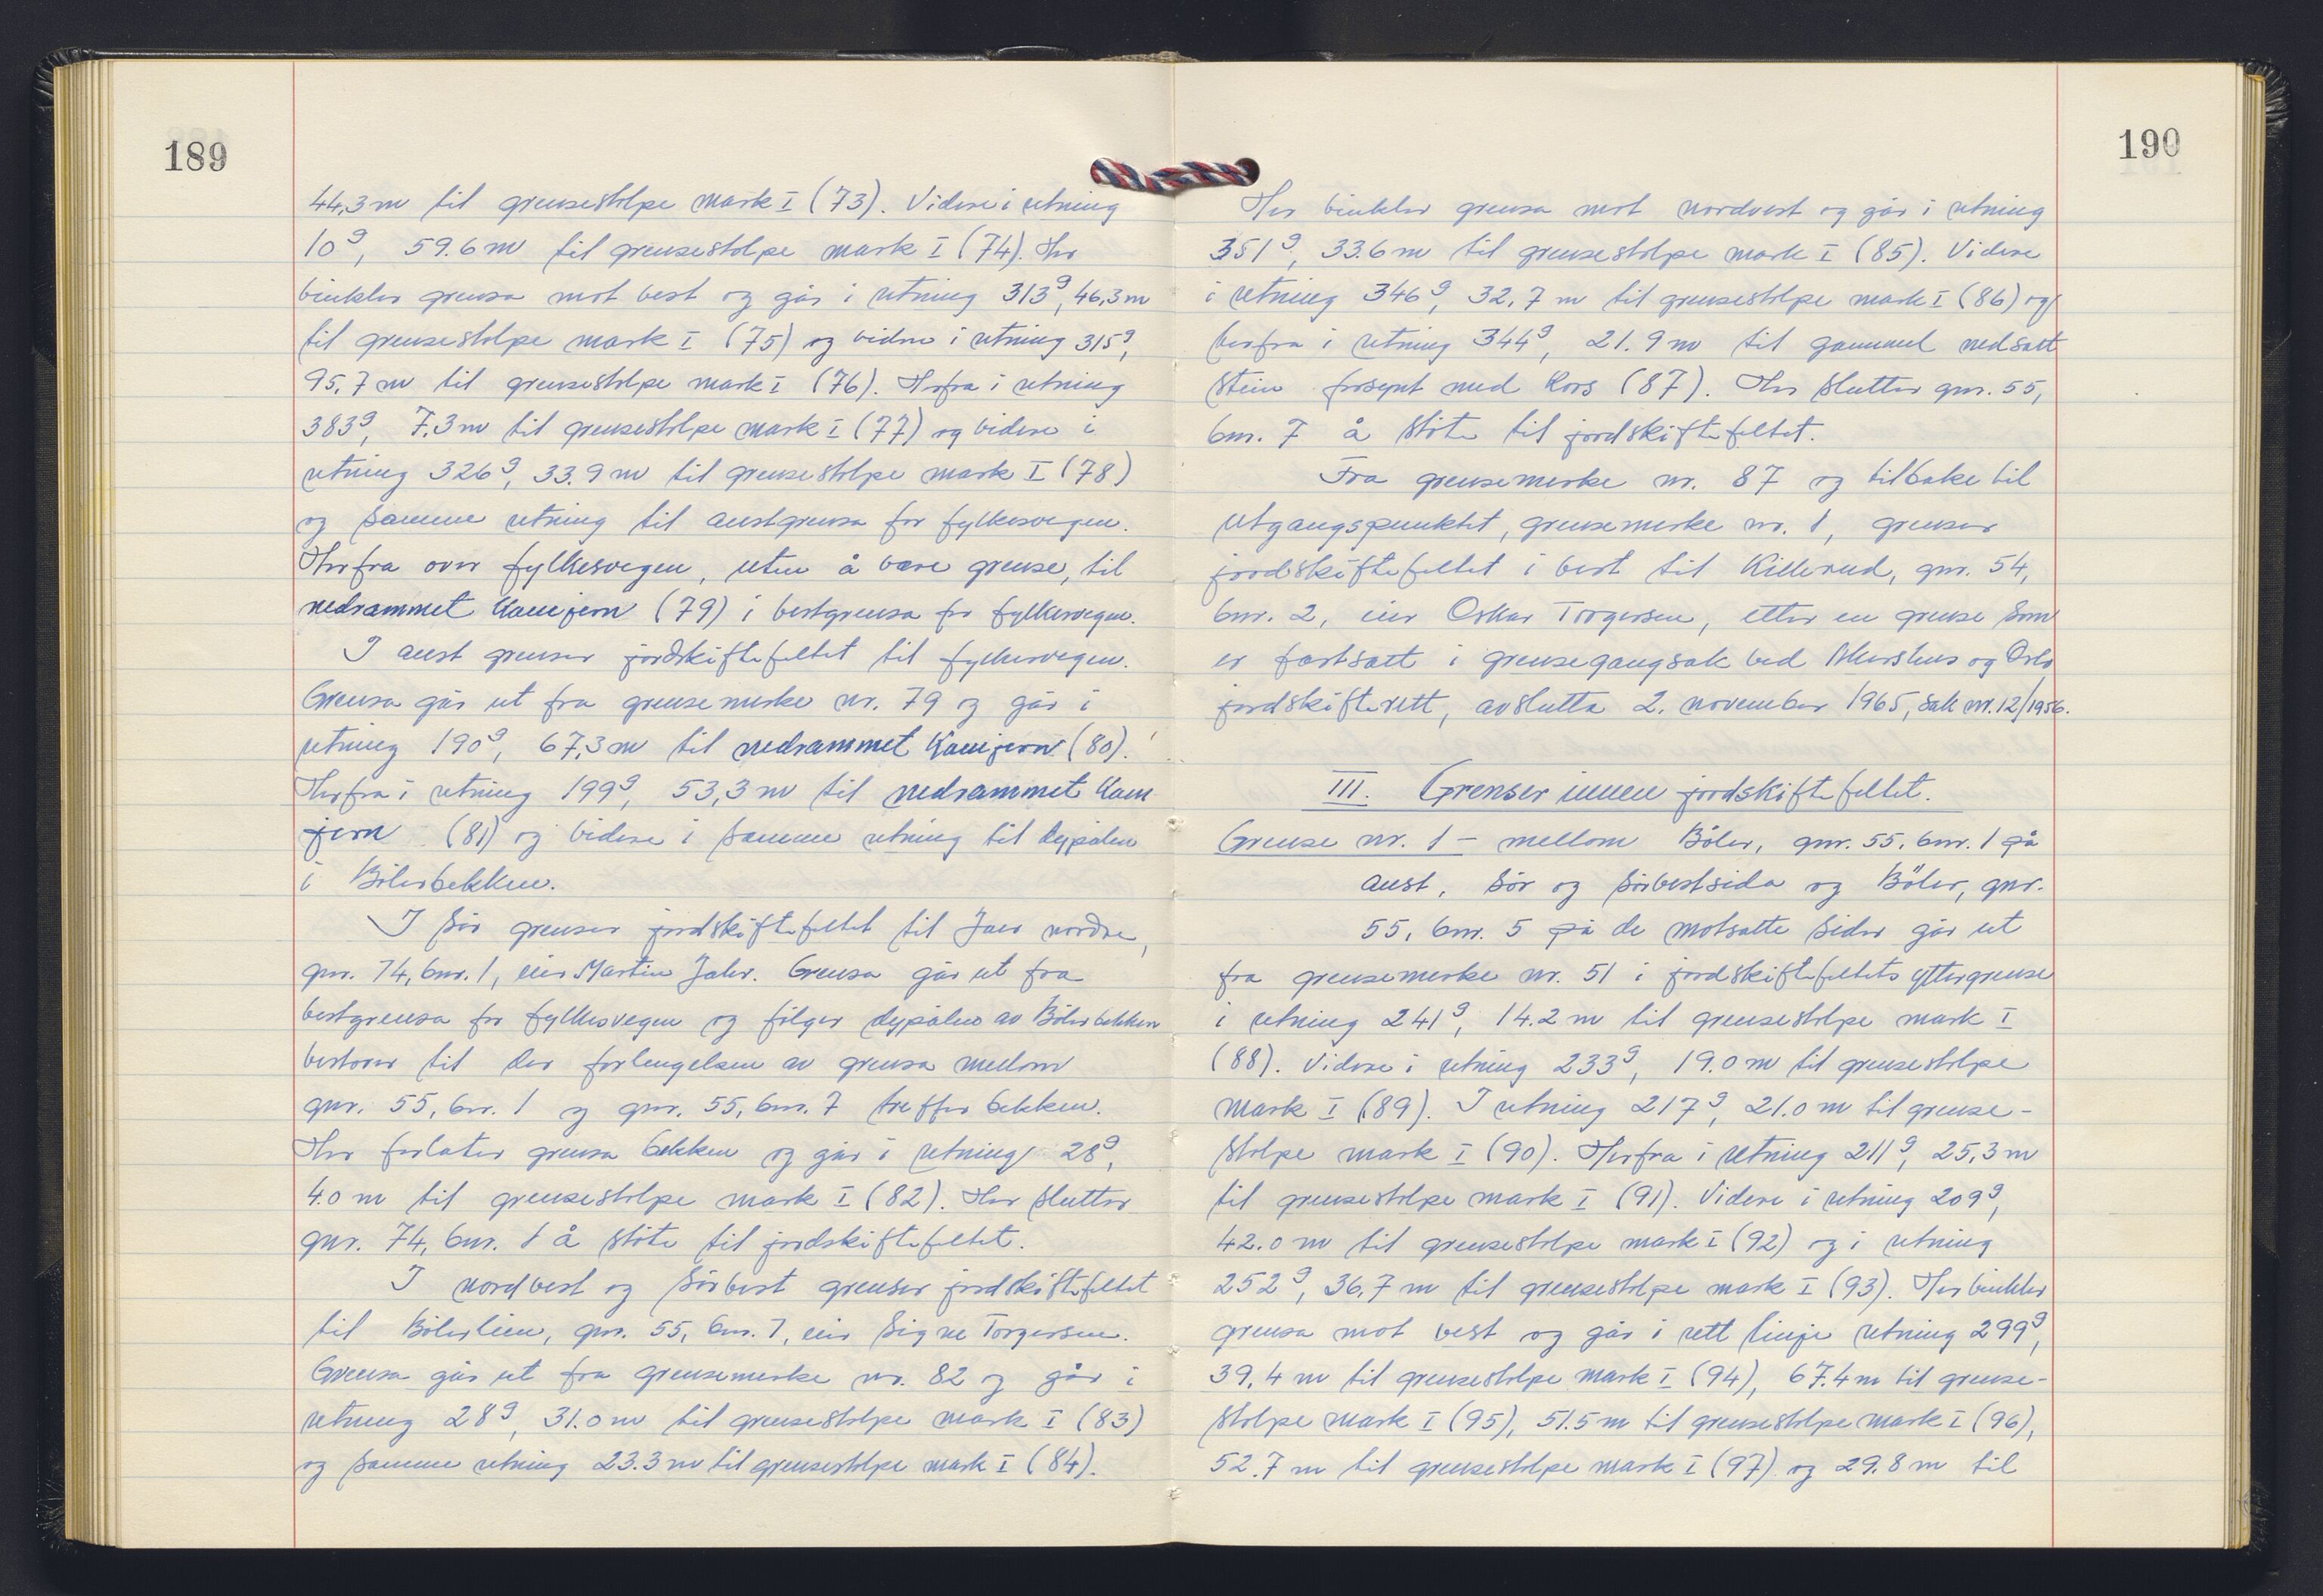 189
44,3 m til grensestolpe mark I (73). Videre i retning
10g, 59.6 m til grensestolpe mark I (74). Her
vinkler grensa mot vest og går i retning 313g, 46,3 m
til grensestolpe mark I (75) og videre i retning 315g,
95,7 m til grensestolpe mark I (76). Herfra i retning
383g, 7.3 m til grensestolpe mark I (77) og videre i
retning 326g, 33.9 m til grensestolpe mark I (78)
og samme retning til austgrensa for fylkesvegen.
Herfra over fylkesvegen, uten å være grense, til
nedrammet kamjern (79) i vestgrensa for fylkesvegen.
I aust grenser jordskiftefeltet til fylkesvegen.
Grensa går ut fra grensemerke nr. 79 og går i
retning 190g, 67,3 m til nedrammet kamjern (80).
Herfra i retning 199g, 53,3 m til nedrammet kam
jern (81) og videre i samme retning til dypålen
i Bölerbekken.
I sör grenser jordskiftefeltet til Jaer nordre,
gnr. 74, bnr. 1, eier Martin Jahr. Grensa går ut fra
vestgrensa for fylkesvegen og fölger dypålen av Bölerbekken
vestover til der forlengelsen av grensa mellom
gnr. 55, bnr. 1 og gnr. 55, bnr. 7 treffer bekken.
Her forlater grensa bekken og går i retning 28g,
4.0 m til grensestolpe mark I (82). Her slutter
gnr. 74, bnr. 1 å stöte til jordskiftefeltet.
I nordvest og sörvest grenser jordskiftefeltet
til Bölerlien, gnr. 55, bnr. 7, eier Signe Torgersen.
Grensa går ut fra grensemerke nr. 82 og går i
retning 28g, 31.0 m til grensestolpe mark I (83)
og samme retning 23.3 m til grensestolpe mark I (84).
190
Her vinkler grensa mot nordvest og går i retning
351g, 33.6 m til grensestolpe mark I (85). Videre
i retning 346g, 32,7 m til grensestolpe mark I (86) og
herfra i retning 344g, 21.9 m til gammel nedsatt
stein forsynt med kors (87). Her slutter gnr. 55,
bnr. 7 å stöte til jordskiftefeltet.
Fra grensemerke nr. 87 og tilbake til
utgangspunktet, grensemerke nr. 1, grenser
jordskiftefeltet i vest til Killerud, gnr. 54,
bnr. 2, eier Oskar Torgersen, etter en grense som
er fastsatt i grensegangsak ved Akershus og Oslo
jordskifterett, avslutta 2. november 1965, sak nr. 12/1956.
III. Grenser innen jordskiftefeltet.
Grense nr. 1 - mellom Böler, gnr. 55, bnr. 1 på
aust, sör og sörvestsida og Böler, gnr.
55, bnr. 5 på de motsatte sider går ut
fra grensemerke nr. 51 i jordskiftefeltets yttergrense
i retning 241g, 14.2 m til grensestolpe mark I
(88). Videre i retning 233g, 19.0 m til grensestolpe
mark I (89). I retning 217g, 21.0 m til grense-
stolpe mark I (90). Herfra i retning 211g, 25,3 m
til grensestolpe mark I (91). Videre i retning 209g,
42.0 m til grensestolpe mark I (92) og i retning
252g, 36,7 m til grensestolpe mark I (93). Her vinkler
grensa mot vest og går i rett linje retning 299g,
39,4 m til grensestolpe mark I (94), 67.4 m til grense-
stolpe mark I (95), 51.5 m til grensestolpe mark I (96),
52.7 m til grensestolpe mark I (97) og 29.8 m til